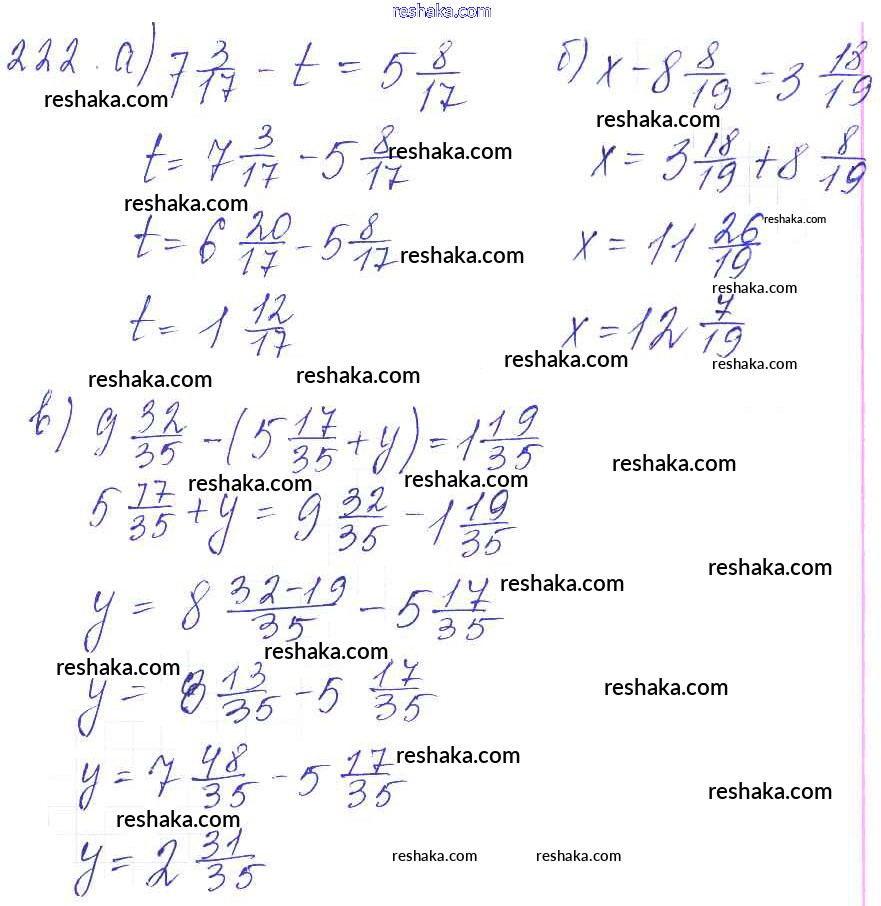 reshaka.com
222. а) 7 3/17 - t = 5 8/17
reshaka.com
t = 7 3/17 - 5 8/17
reshaka.com
reshaka.com
t = 6 20/17 - 5 8/17
reshaka.com
t = 1 12/17
reshaka.com
reshaka.com
б) x - 8 8/19 = 3 18/19
reshaka.com
x = 3 18/19 + 8 8/19
reshaka.com
x = 11 26/19
reshaka.com
x = 12 7/19
reshaka.com
reshaka.com
в) 9 32/35 - (5 17/35 + y) = 1 19/35
reshaka.com
reshaka.com
reshaka.com
5 17/35 + y = 9 32/35 - 1 19/35
reshaka.com
y = 8 (32-19)/35 - 5 17/35
reshaka.com
reshaka.com
reshaka.com
y = 8 13/35 - 5 17/35
reshaka.com
reshaka.com
y = 7 48/35 - 5 17/35
reshaka.com
reshaka.com
y = 2 31/35
reshaka.com
reshaka.com